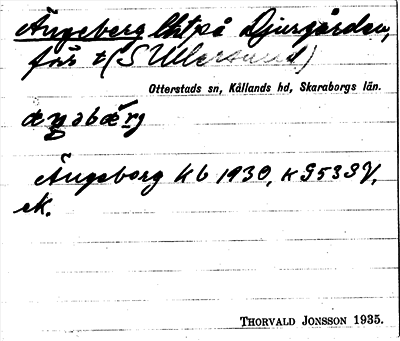 Ängeberg lht på Djurgården,
förr t (S Ullersund)
Otterstads sn, Kållands hd, Skaraborgs län.
æŋəbærg
Ängeborg kb 1930, k G53SV,
ek.
THORVALD JONSSON 1935.